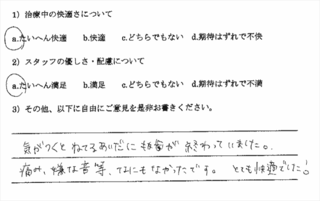 1) 治療中の快適さについて
a.たいへん快適 b.快適 c.どちらでもない d.期待はずれで不快
2) スタッフの優しさ・配慮について
a.たいへん満足 b.満足 c.どちらでもない d.期待はずれで不満
3) その他、以下に自由にご意見を是非お書きください。
気がつくとねてるあいだに抜歯が終わっていました。
痛み、嫌な音等、なにもなかったです。とても快適でした!